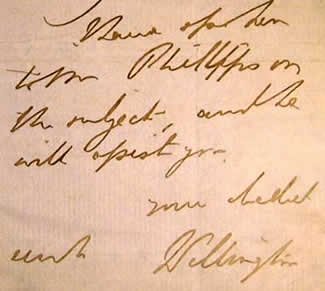 I have spoken
to Mr Phillipps on
the subject, and he
will assist you.
your obedient
Wellington